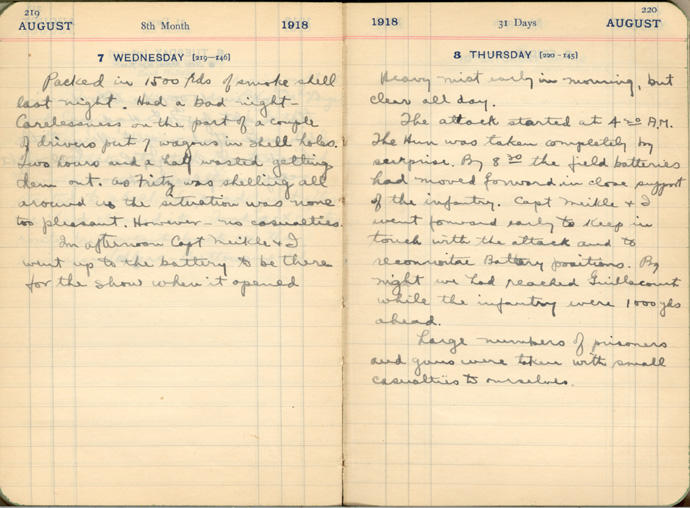 219
AUGUST 8th Month 1918
7 WEDNESDAY [219—146]
Packed in 1500 rds of smoke shell
last night. Had a bad night—
Carelessness on the part of a couple
of drivers put 7 wagons in shell holes.
Two hours and a half wasted getting
them out. As Fritz was shelling all
around us the situation was none
too pleasant. However — no casualties.
In afternoon Capt Meikle & I
went up to the battery to be there
for the show when it opened
220
1918 31 Days AUGUST
8 THURSDAY [220—145]
Heavy mist early in morning, but
clear all day.
The attack started at 4 20 A.M.
The Hun was taken completely by
surprise. By 8 30 the field batteries
had moved forward in close support
of the infantry. Capt Meikle & I
went forward early to keep in
touch with the attack and to
reconnoitre Battery positions. By
night we had reached Guillacourt
while the infantry were 1000 yds
ahead.
Large numbers of prisoners
and guns were taken with small
casualties to ourselves.